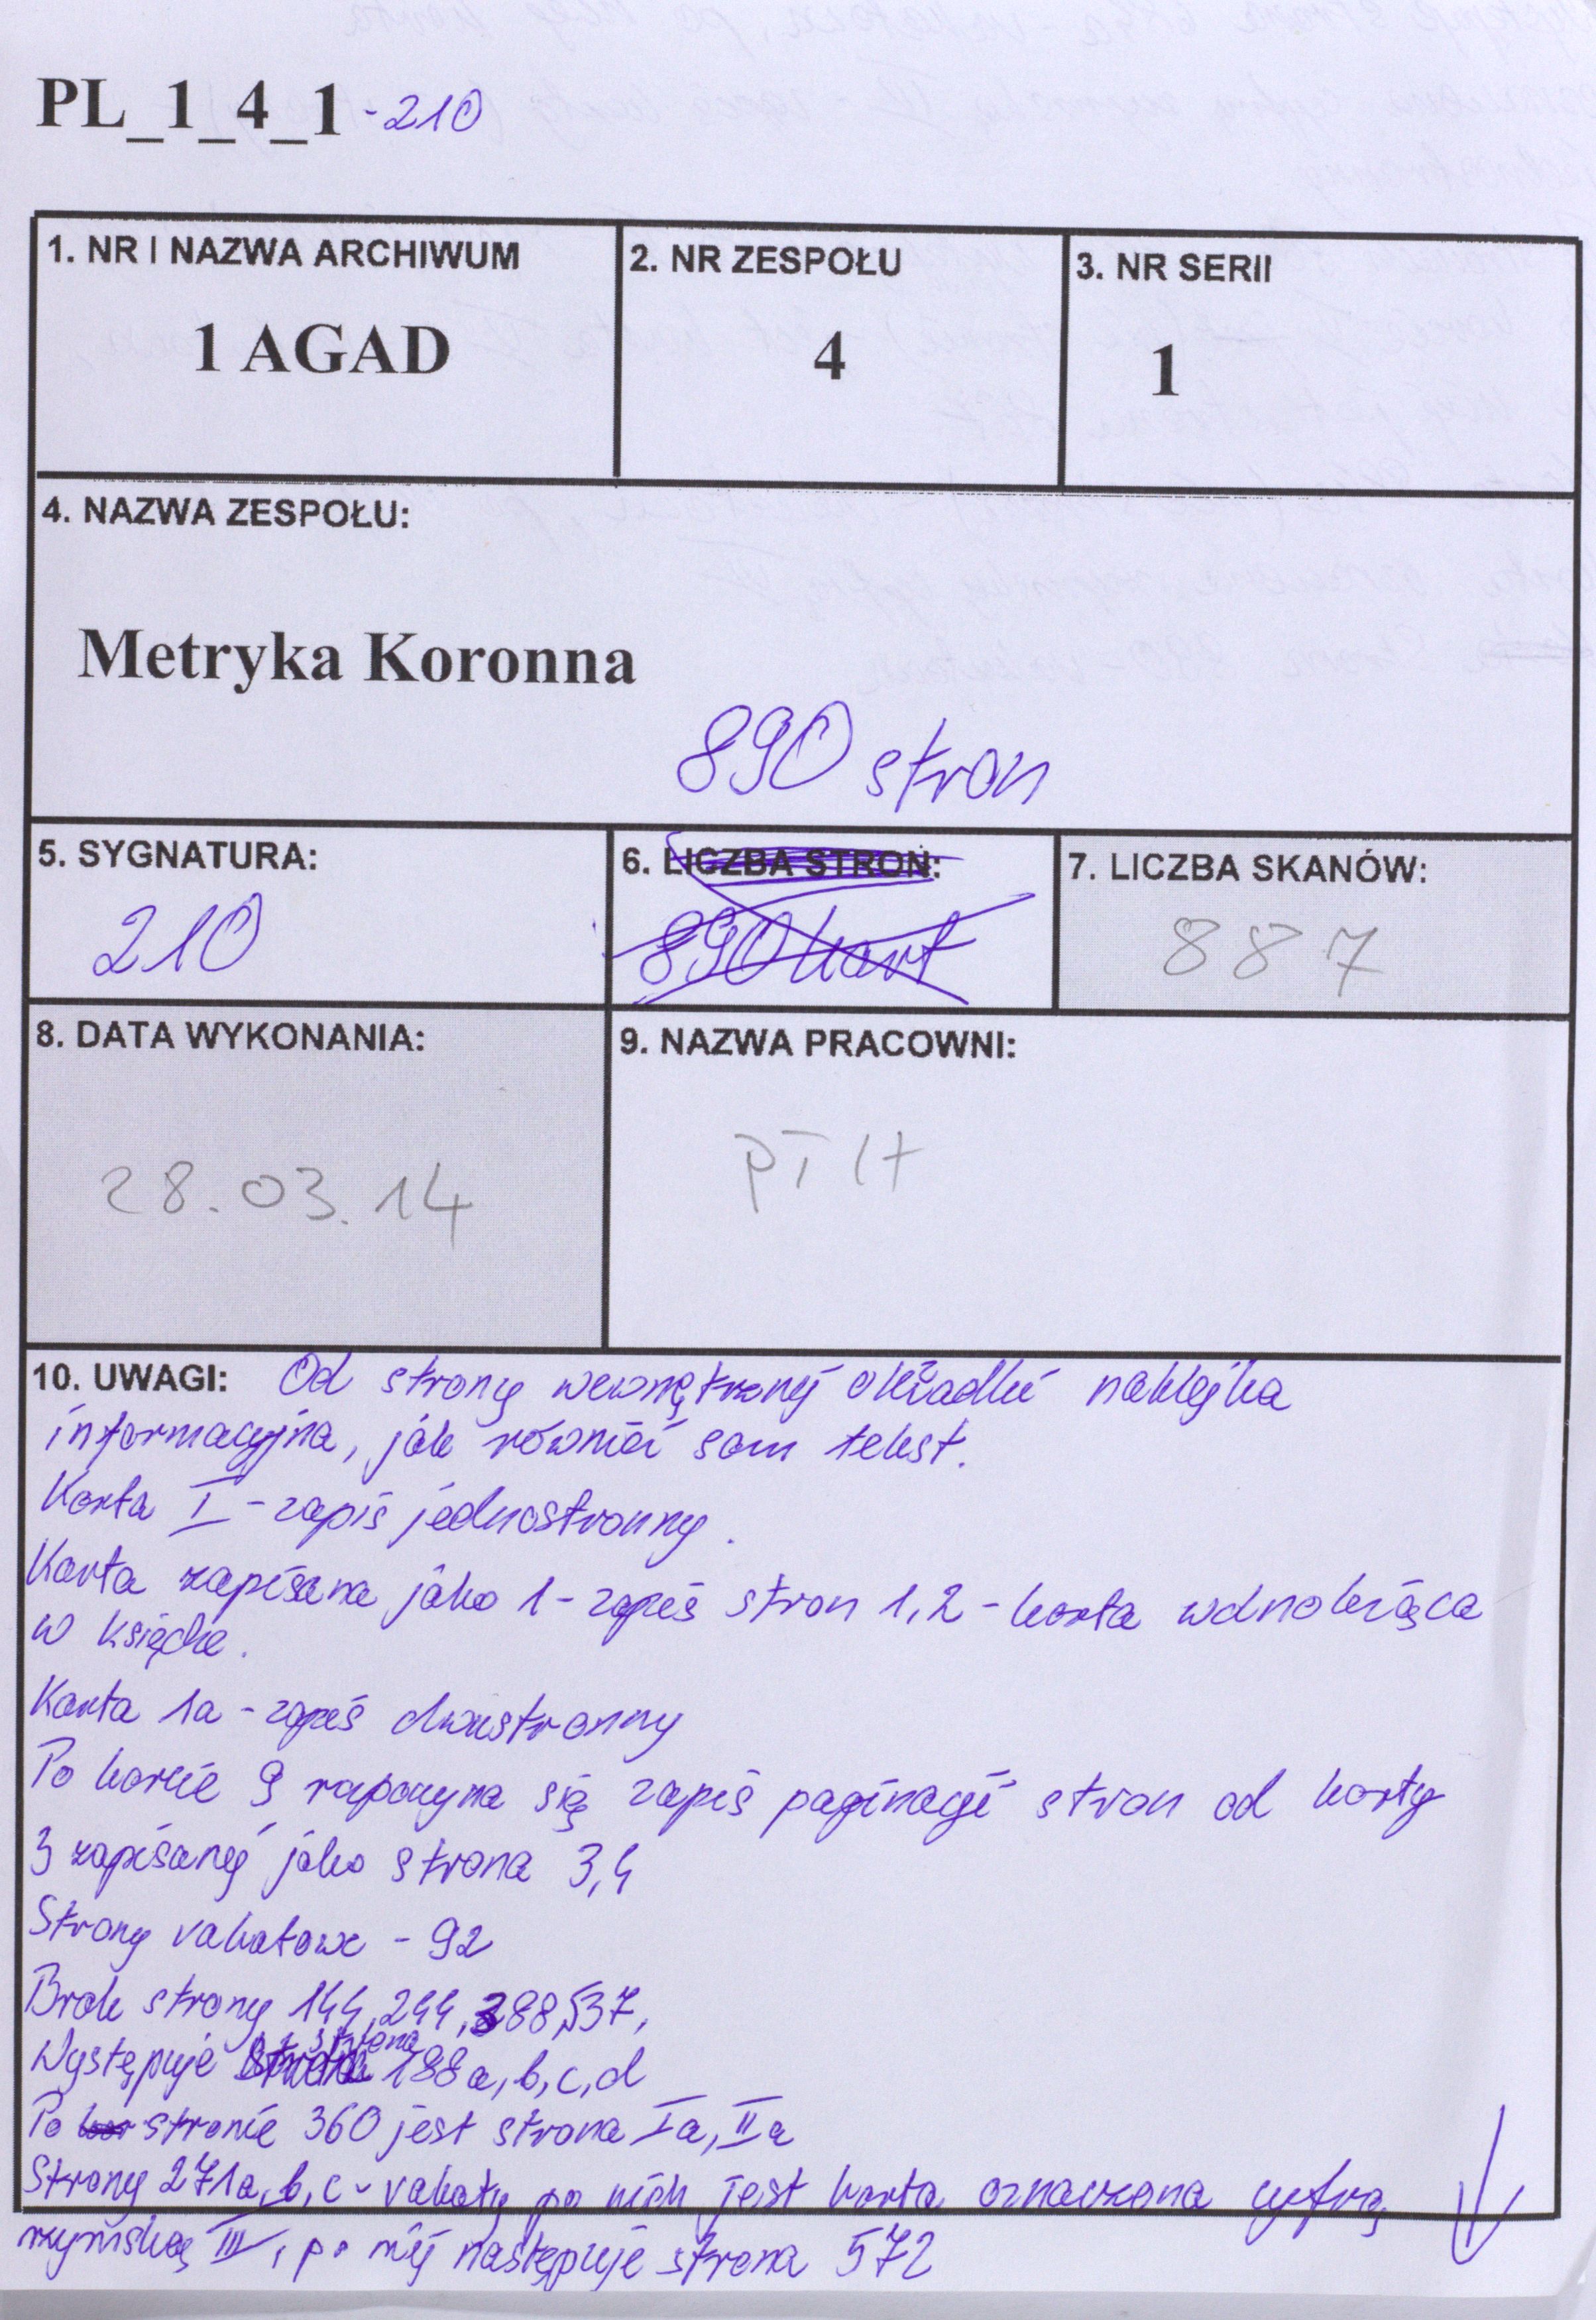 PL_1_4_1 - 210
1. NR I NAZWA ARCHIWUM
1 AGAD
2. NR ZESPOŁU
4
3. NR SERII
1
4. NAZWA ZESPOŁU:
Metryka Koronna
890 stron
5. SYGNATURA:
210
6. LICZBA STRON:
890 kart
7. LICZBA SKANÓW:
887
8. DATA WYKONANIA:
28.03.14
9. NAZWA PRACOWNI:
10. UWAGI: Od strony wewnętrznej okładki naklejka
informacyjna, jak również sam tekst.
Karta I - zapis jednostronny.
Karta zapisana jako 1 - zapis stron 1,2 - karta
w księdze.
Karta 1a - zapis dwustronny
Po karcie 9 zapoczyna się zapis paginacji stron od karty
3 zapisanej jako strona 3,4
Strony vakatowe - 92
Brak strony 144, 244, 388, 537,
Występuje strona 188a, b, c, d
Po stronie 360 jest strona Ia, IIa
Strony 271a, b, c - vakaty po nich jest karta oznaczona cyfrą
rzymską III, po niej następuje strona 572